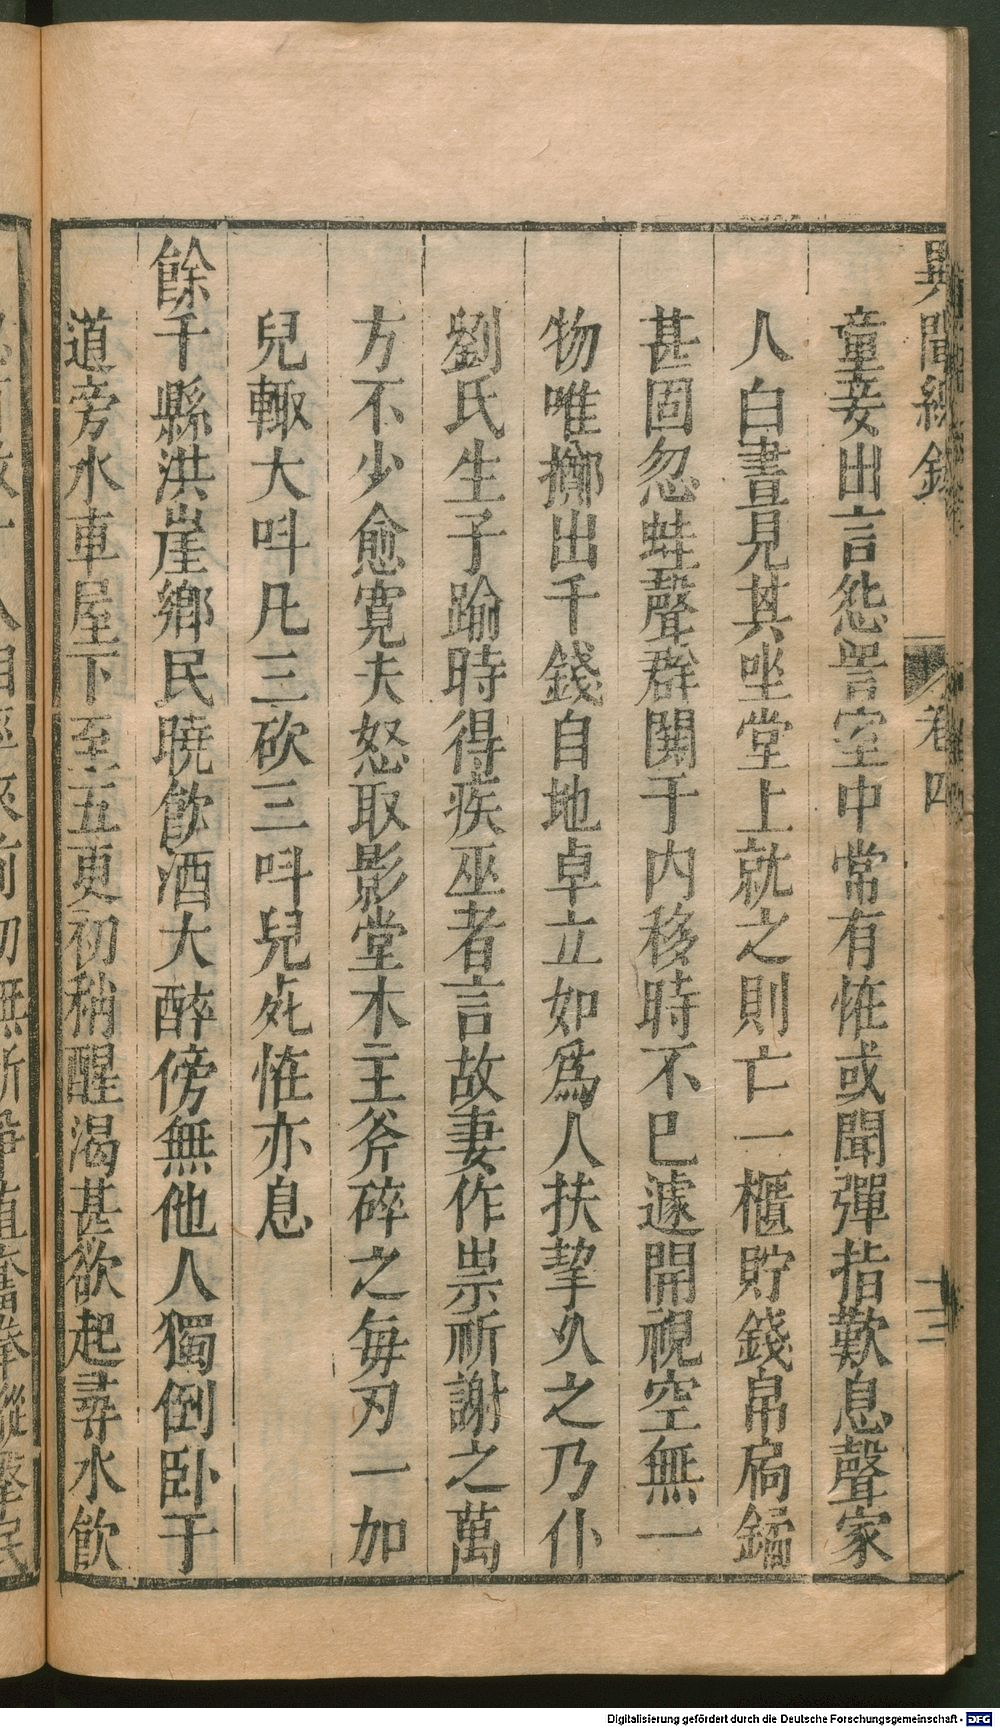 異聞總錄
卷四
童妾出言怨詈室中常有恠或聞彈指歎息聲家
人白晝見其坐堂上就之則亡一櫃貯錢帛扃鐍
甚固忽蛙聲群鬭于內移時不已遽開視空無一
物唯擲出千錢自地卓立如爲人扶挈乆之乃仆
劉氏生子踰時得疾巫者言故妻作祟祈謝之萬
方不少愈寛夫怒取影堂木主斧碎之每刃一加
兒輙大呌凡三砍三呌兒死恠亦息
餘干縣洪崖鄉民曉飮酒大醉傍無他人獨倒卧于
道旁水車屋下至五更初稍醒渴甚欲起尋水飮